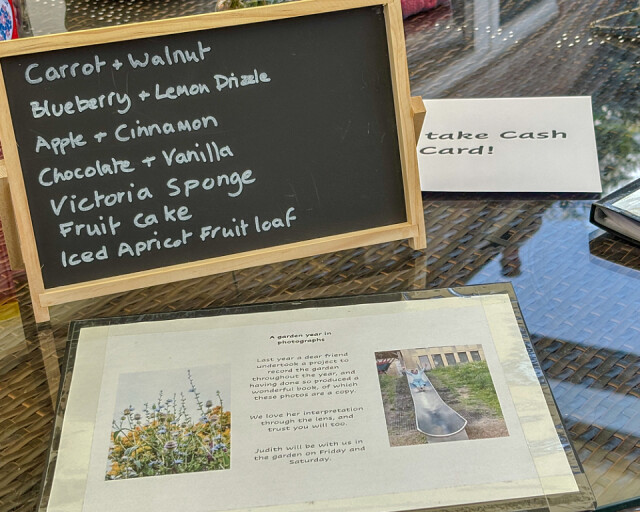 Carrot + Walnut
Blueberry + Lemon Drizzle
Apple + Cinnamon
Chocolate + Vanilla
Victoria Sponge
Fruit Cake
Iced Apricot Fruit loaf
take Cash
Card!
A garden year in
photographs
Last year a dear friend
undertook a project to
record the garden
throughout the year, and
having done so produced a
wonderful book, of which
these photos are a copy.
We love her interpretation
through the lens, and
trust you will too.
Judith will be with us in
the garden on Friday and
Saturday.